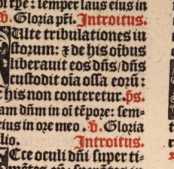 tpe: semper laus eius in
℣. Gloria pr̄i. Introitus.
Ulte tribulationes iu
storum: ⁊ de his oib̄us
liberauit eos dn̄s/dn̄s
custodit oīa ossa eorū:
his non conteretur. p̄s.
am dn̄m in oī tēpore: sem-
eius in ore meo. ℣. Gloria
Introitus.
Cce oculi dn̄i super ti-